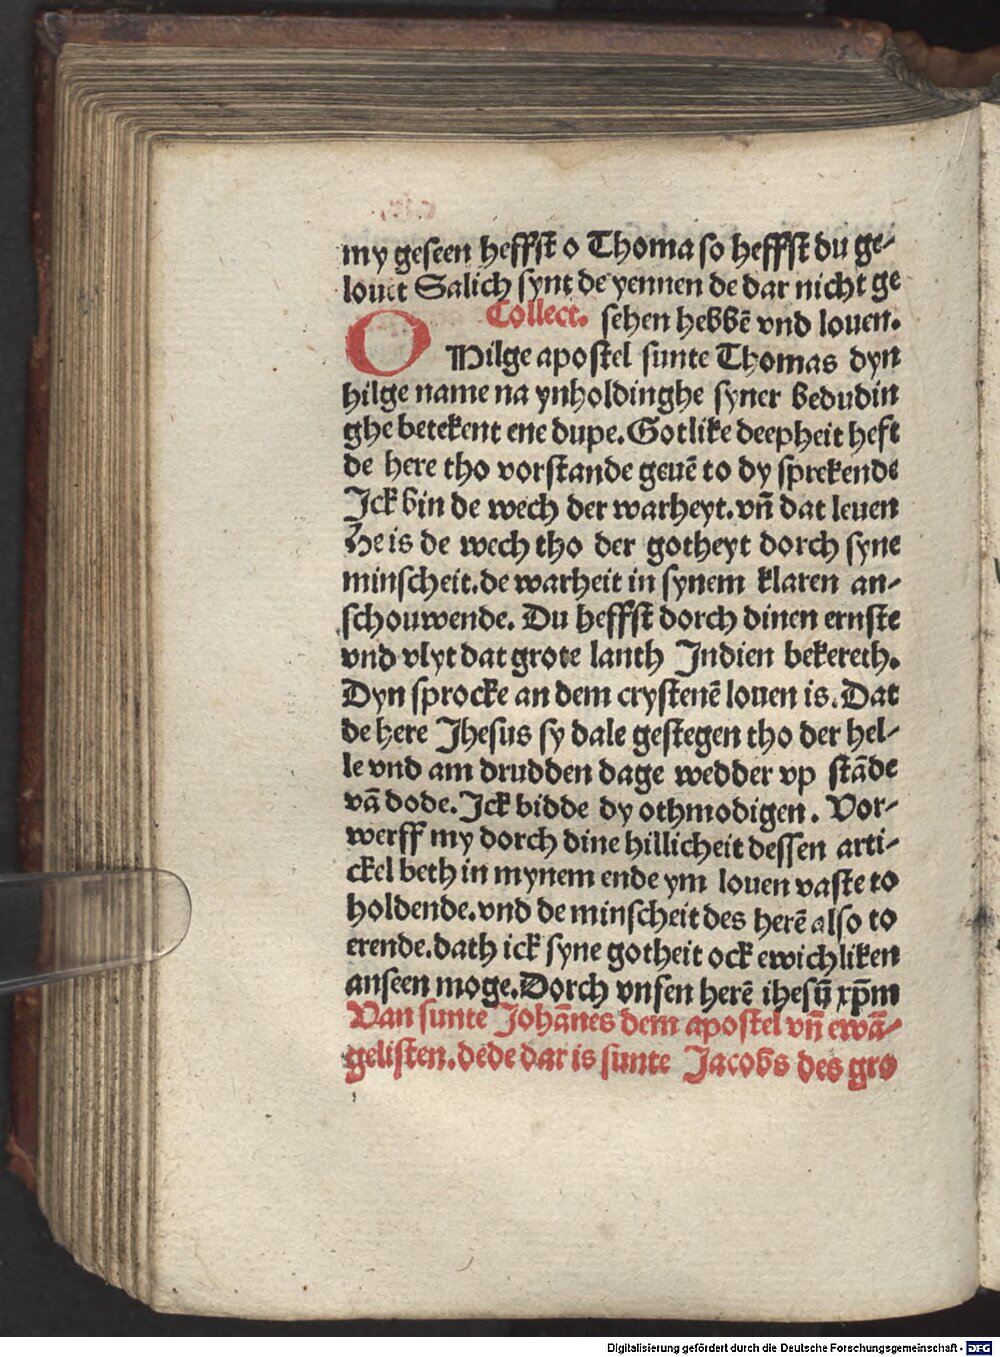 my geseen heffst o Thoma so heffst du ge-
louet Salich synt de yennen de dar nicht ge
Collect. sehen hebbē vnd louen.
O Hilge apostel sunte Thomas dyn
hilge name na ynholdinghe syner bedudin
ghe betekent ene dupe. Gotlike deepheit heft
de here tho vorstande geuē to dy sprekende
Jck bin de wech der warheyt. vn̄ dat leuen
He is de wech tho der gotheyt dorch syne
minscheit. de warheit in synem klaren an-
schouwende. Du heffst dorch dinen ernste
vnd vlyt dat grote lanth Jndien bekereth.
Dyn sprocke an dem crystenē louen is. Dat
de here Jhesus sy dale gestegen tho der hel-
le vnd am drudden dage wedder vp stāde
vā dode. Jck bidde dy othmodigen. Vor-
werff my dorch dine hillicheit dessen arti-
ckel beth in mynem ende ym louen vaste to
holdende. vnd de minscheit des herē also to
erende. dath ick syne gotheit ock ewichliken
anseen moge. Dorch vnsen herē ihesū xp̄m
Van sunte Johānes dem apostel vn̄ ewā-
gelisten. dede dar is sunte Jacobs des gro
Digitalisierung gefördert durch die Deutsche Forschungsgemeinschaft - DFG